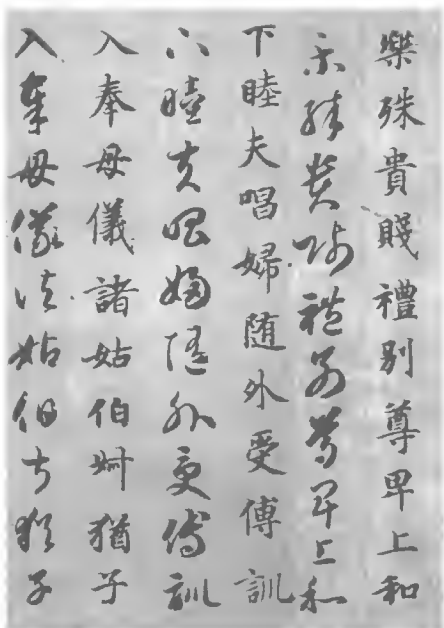 樂殊貴賤禮別尊卑上和
樂殊貴賤禮別尊卑上和
下睦夫唱婦随外受傅訓
下睦夫唱婦随外受傅訓
入奉母儀諸姑伯叔猶子
入奉母儀諸姑伯叔猶子